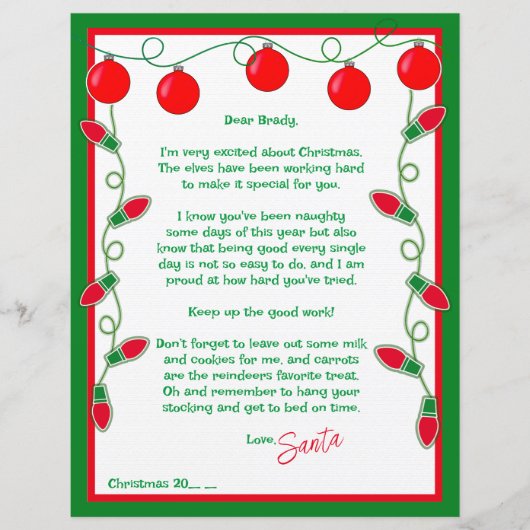 Dear Brady,
I'm very excited about Christmas.
The elves have been working hard
to make it special for you.
I know you've been naughty
some days of this year but also
know that being good every single
day is not so easy to do, and I am
proud at how hard you've tried.
Keep up the good work!
Don't forget to leave out some milk
and cookies for me, and carrots
are the reindeers favorite treat.
Oh and remember to hang your
stocking and get to bed on time.
Love, Santa
Christmas 20__ __